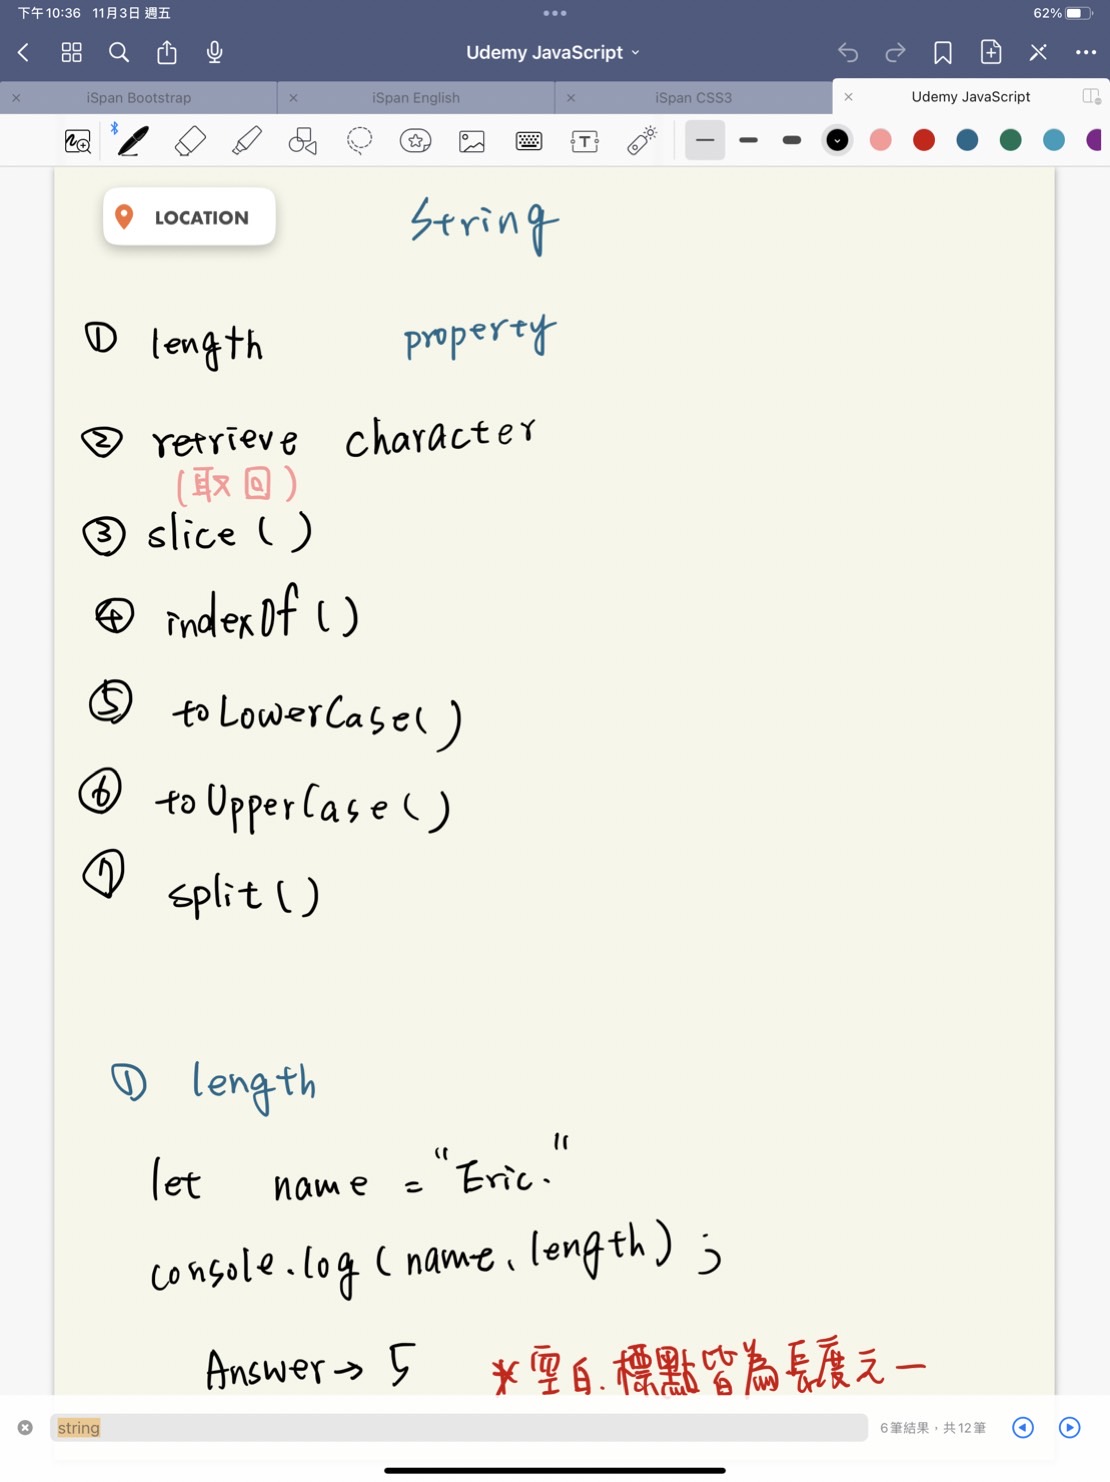 下午10:36 11月3日 週五
62%
Udemy JavaScript
iSpan Bootstrap
iSpan English
iSpan CSS3
Udemy JavaScript
LOCATION
String
① length property
② retrieve character
(取回)
③ slice ( )
④ indexOf ( )
⑤ toLowerCase( )
⑥ toUpperCase ( )
⑦ split ( )
① length
let name = "Eric."
console.log ( name. length ) ;
Answer → 5 *空白.標點皆為長度之一
string
6筆結果，共12筆